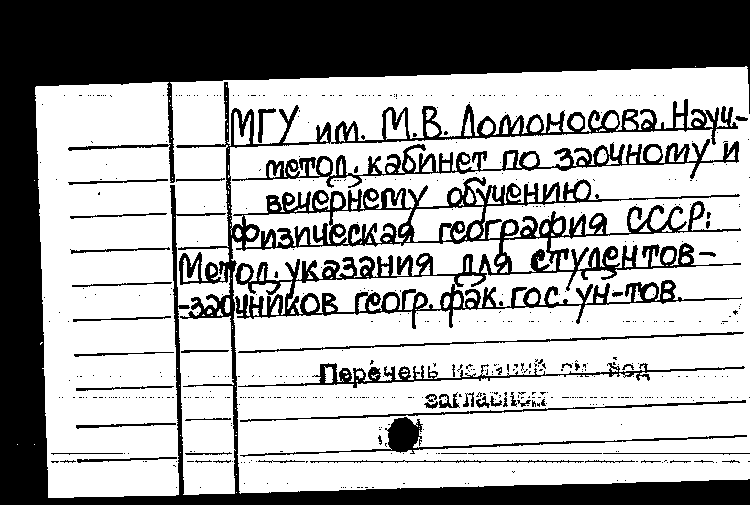 МГУ им. М.В. Ломоносова. Науч.-
метод. кабинет по заочному и
вечернему обучению.
Физическая география СССР:
Метод. указания для студентов-
-заочников геогр. фак. гос. ун-тов.
Перечень изданий см. под
заглавием